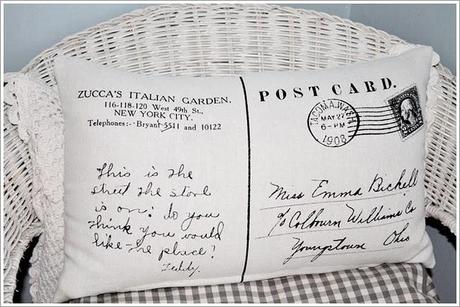 ZUCCA'S ITALIAN GARDEN.
116-118-120 West 49th St.,
NEW YORK CITY.
Telephones:-Bryant 5511 and 10122
This is the
street the store
is on: do you
think you would
like the place?
Teddy.
POST CARD.
TACOMA, WASH.
MAY 27
6-PM
1908
Miss Emma Bichell
c/o Colbourn Williams Co
Youngstown Ohio